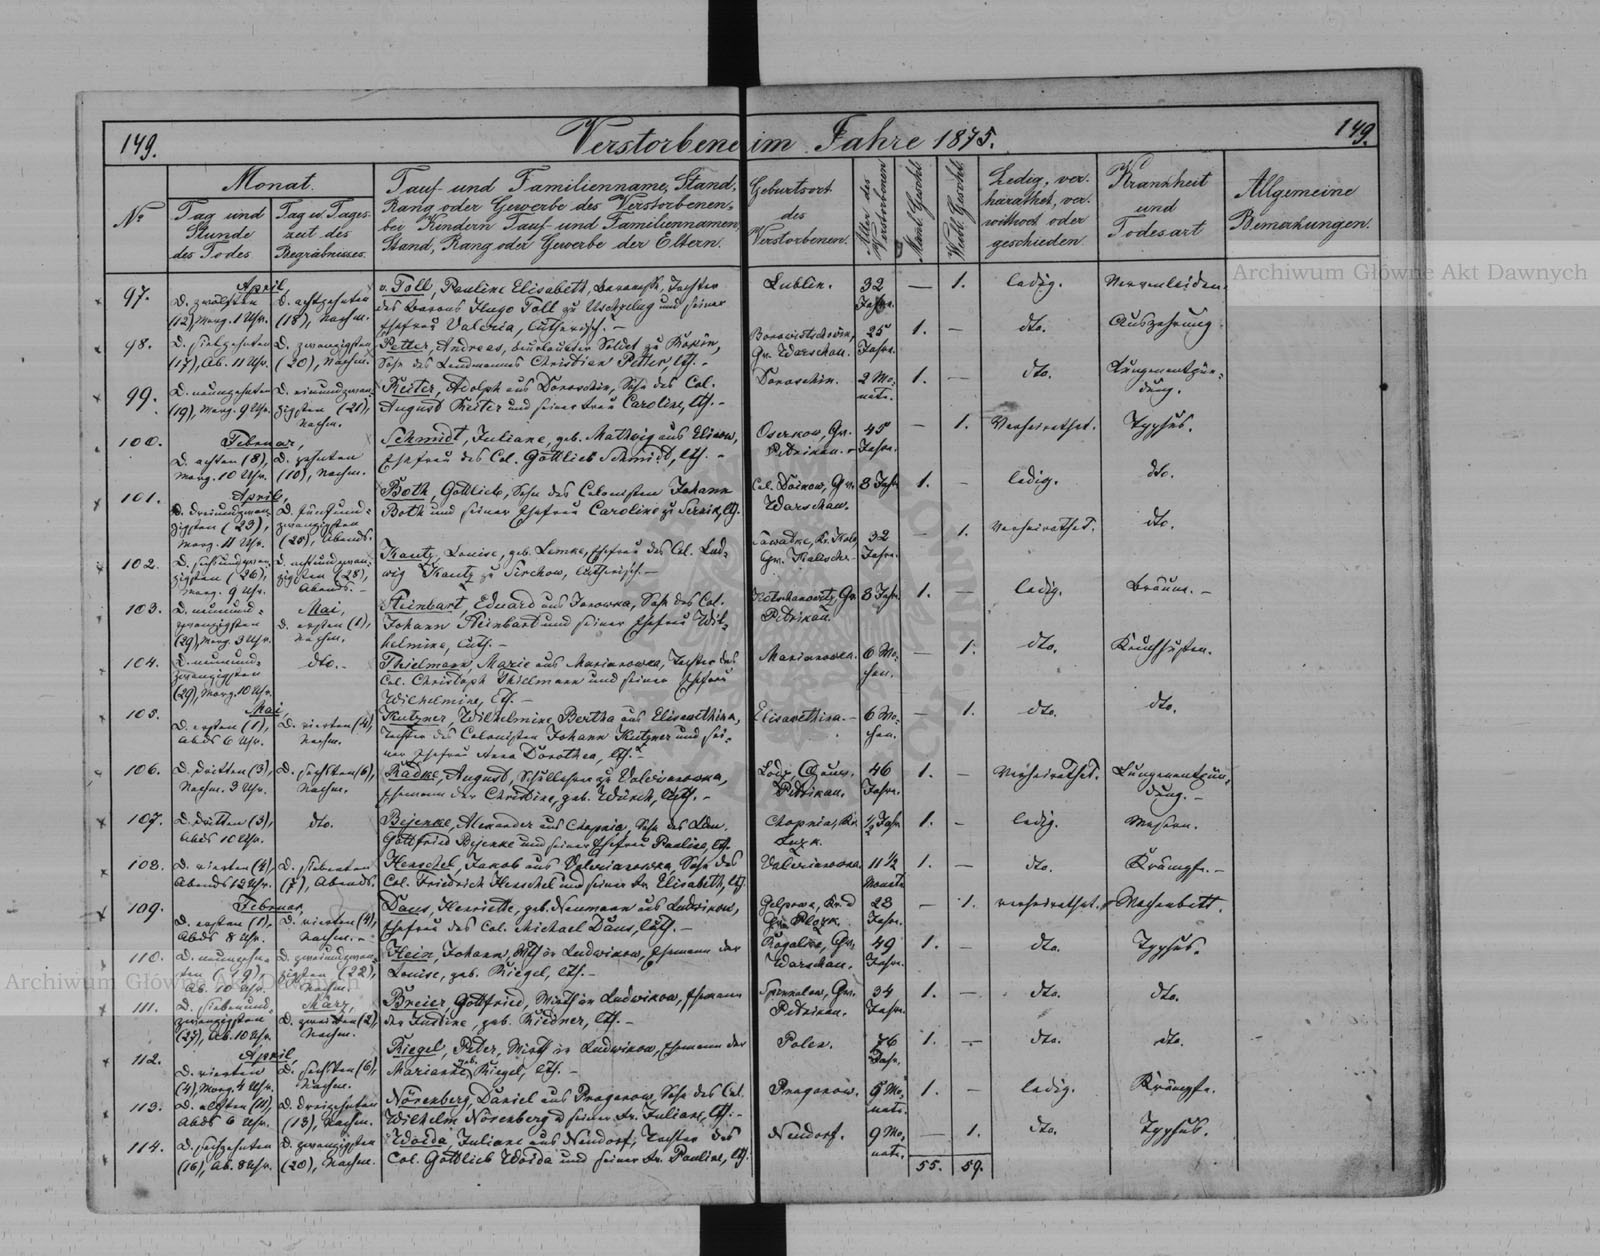 149.
Verstorbene im Jahre 1875.
149.
№
Monat.
Tag und Stunde des Todes
Tag u. Tageszeit des Begräbnisses.
Tauf- und Familienname, Stand,
Rang oder Gewerbe des Verstorbenen,
bei Kindern Tauf- und Familiennamen,
Stand, Rang oder Gewerbe der Eltern.
Geburtsort des Verstorbenen.
Alter des Verstorbenen
Männl. Geschl.
Weibl. Geschl.
Ledig, verharathet, verwithwet oder geschieden
Krankheit und Todesart
Allgemeine Bemerkungen.
97.
April,
D. zwölften (12), Morg. 1 Uhr.
D. achtzehnten (18), Nachm.
v. Toll, Pauline Elisabeth, Baroness, Tochter
des Barons Hugo Toll zu Uschzilug und seiner
Ehefrau Valeria, lutherisch. –
Lublin.
32 Jahre.
— 1.
ledig.
Nervenleiden.
98.
D. siebzehnten (17), Ab. 11 Uhr.
D. zwanzigsten (20), Nachm.
Petter, Andreas, beurlaubter Soldat zu Kopin,
Sohn des Landmannes Christian Petter, lth. –
Gv. Warschau.
25 Jahre.
1. —
dto.
Auszehrung.
99.
D. neunzehnten (19), Morg. 9 Uhr.
D. einundzwanzigsten (21), Nachm.
Reiter, Adolph aus Doroschin, Sohn des Col.
August Reiter und seiner Frau Caroline, lth. –
Doroschin.
2 Monate.
1. —
dto.
Lungenentzündung.
100.
Februar,
D. achten (8), Morg. 10 Uhr.
D. zehnten (10), Nachm.
Schmidt, Juliane, geb. Mathwig aus Elinow,
Ehefrau des Col. Gottlieb Schmidt, lth. –
Oserkow, Gv. Petrikau.
45 Jahre.
— 1.
Verheirathet.
Typhus.
101.
April,
D. dreiundzwanzigsten (23), Morg. 11 Uhr.
D. fünfundzwanzigsten (25), Abends.
Both, Gottlieb, Sohn des Colonisten Johann
Both und seiner Ehefrau Caroline zu Sernik, lth.
Gv. Warschau.
8 Jahr
1. —
ledig.
dto.
102.
D. sechsundzwanzigsten (26), Morg. 9 Uhr.
D. achtundzwanzigsten (28), Abends. –
Kautz, Louise, geb. Lemke, Ehefrau des Col. Ludwig
Kautz zu Sirchow, lutherisch. –
Gv. Kalisch.
32 Jahre.
— 1.
Verheirathet.
dto.
103.
D. neunundzwanzigsten (29), Morg. 3 Uhr.
Mai,
D. ersten (1), Nachm.
Steinbart, Eduard aus Janowka, Sohn des Col.
Johann Steinbart und seiner Ehefrau Wilhelmine,
luth. –
Gv. Petrikau.
8 Jahr.
1. —
ledig.
Bräune. –
104.
D. neunundzwanzigsten (29), Morg. 10 Uhr.
dto. –
Thielmann, Marie aus Marianowka, Tochter des
Col. Christoph Thielmann und seiner Ehefrau
Wilhelmine, lth. –
Marianowka.
6 Wochen.
— 1.
dto.
Keuchhusten.
105.
Mai,
D. ersten (1), Abds 6 Uhr.
D. vierten (4), Nachm.
Kutzner, Wilhelmine Bertha aus Elisawethina,
Tochter des Colonisten Johann Kutzner und seiner
Ehefrau Anna Dorothea, lth. –
Elisawethina. –
6 Wochen.
— 1.
dto.
dto.
106.
D. dritten (3), Nachm. 3 Uhr.
D. sechsten (6), Nachm.
Radke, August, zu Valerianowka,
Ehemann der Christine, geb. Würch, luth. –
Lodz, Petrikau.
46 Jahre.
1. —
Verheirathet.
Lungenentzündung. –
107.
D. dritten (3), Abds 10 Uhr.
dto.
Bejenke, Alexander aus Chopnia, Sohn des
Gottfried Bejenke und seiner Ehefrau Pauline, lth.
Chopnia, Kr. Luzk.
½ Jahr
1. —
ledig.
Masern.
108.
D. vierten (4), Abends 12 Uhr.
D. siebenten (7), Abends.
Henschel, Jakob aus Valerianowka, Sohn des
Col. Friedrich Henschel und seiner Fr. Elisabeth, lth.
Valerianowka.
11½ Monate
1. —
dto.
Krämpfe. –
109.
Februar,
D. ersten (1), Abds 8 Uhr.
D. vierten (4), Nachm. –
Daus, Henriette, geb. Neumann aus Ludwikow,
Ehefrau des Col. Michael Daus, luth. –
Gv. Plozk.
23 Jahre.
— 1.
verheirathet.
Wochenbett.
110.
D. neunzehnten (19), Ab. 10 Uhr.
D. zweiundzwanzigsten (22), Nachm.
Hein, Johann, Wirth in Ludwikow, Ehemann der
Louise, geb. Riegel, lth. –
Rogalka, Gv. Warschau.
49 Jahre.
1. —
dto.
Typhus.
111.
D. siebenundzwanzigsten (27), Ab. 10 Uhr.
März,
D. zweiten (2), Nachm.
Breier, Gottfried, Wirth in Ludwikow, Ehemann
der Justine, geb. Riedner, lth. –
Gv. Petrikau.
34 Jahre.
1. —
dto.
dto.
112.
April,
D. vierten (4), Morg. 4 Uhr.
D. sechsten (6), Nachm.
Riegel, Peter, Wirth in Ludwikow, Ehemann der
Marianne geb. Riegel, lth. –
Polen.
76 Jahr.
1. —
dto.
dto.
113.
D. elften (11), Abds 6 Uhr.
D. dreizehnten (13), Nachm.
Nörenberg, Daniel aus Praganow, Sohn des Col.
Wilhelm Nörenberg u seiner Fr. Juliane, lth. –
Praganow.
5 Monate.
1. —
ledig.
Krämpfe.
114.
D. sechzehnten (16), Ab. 8 Uhr.
D. zwanzigsten (20), Nachm.
Woida, Juliane aus Neudorf, Tochter des
Col. Gottlieb Woida und seiner Fr. Pauline, lth.
Neudorf.
9 Monate.
— 1.
dto.
Typhus.
55. 59.
Archiwum Główne Akt Dawnych
Archiwum Główne Akt Dawnych